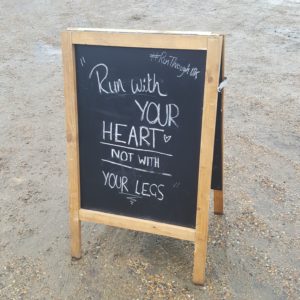 #RunThroughUK
"Run with
YOUR
HEART
NOT WITH
YOUR LEGS"